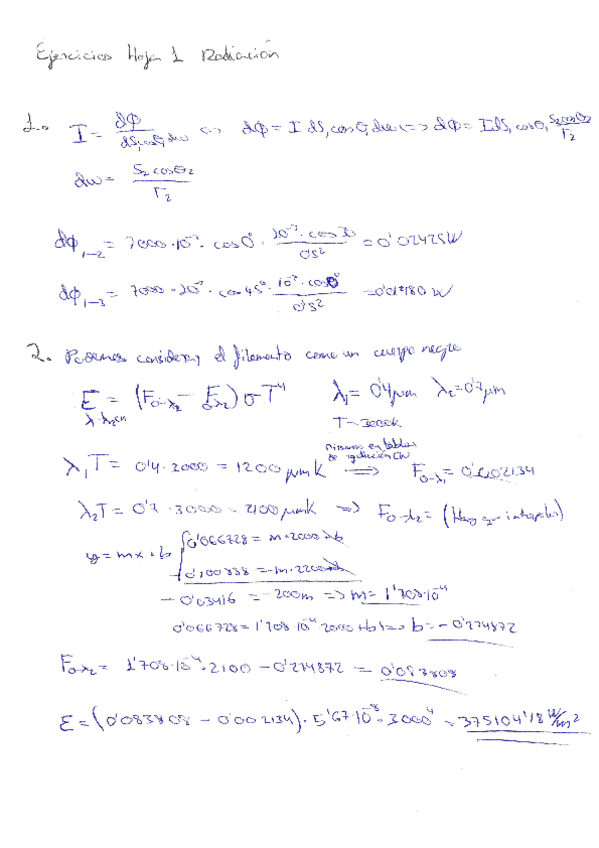 Ejercicios Hoja 1 Radiación
1. I = dΦ / dS₁cosθ₁dω <=> dΦ = I dS₁ cosθ₁ dω <=> dΦ = I dS₁ cosθ₁ S₂cosθ₂ / r₂
dω = S₂ cosθ₂ / r₂
dΦ₁₋₂ = 7000·10⁻³· cos0°· 10⁻³· cos30 / 0'5² = 0'02425W
dΦ₁₋₃ = 7000·10⁻³· cos45°· 10⁻³· cos0° / 0'5² = 0'01980 W
2. Podemos considerar el filamento como un cuerpo negro
E = (F₀₋λ₂ - F₀₋λ₂) σT⁴ λ₁ = 0'4μm λ₂ = 0'7μm
T = 3000K
λ₁T = 0'4 · 3000 = 1200 μmK => F₀₋λ₁ = 0'002134
λ₂T = 0'7 · 3000 = 2100 μmK => F₀₋λ₂ = (Hay que interpolar)
y = mx + b { 0'066728 = m·2000 + b
0'100888 = m·2200 + b
- 0'03416 = -200m => m = 1'708·10⁻⁴
0'066728 = 1'708·10⁻⁴·2000 + b => b = -0'274872
F₀₋λ₂ = 1'708·10⁻⁴·2100 - 0'274872 = 0'083808
E = (0'083808 - 0'002134)· 5'67·10⁻⁸· 3000⁴ = 375104'18 W/m²